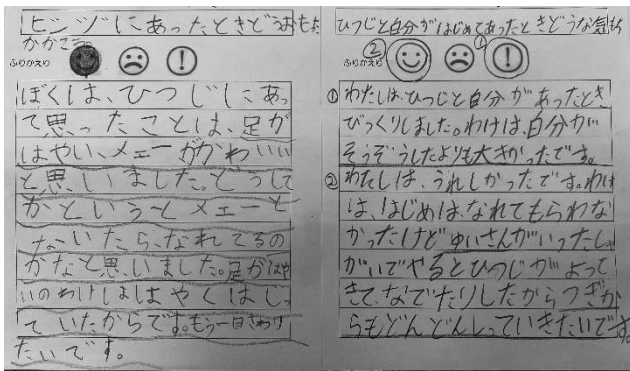 ヒツジにあったときどうおもったか
かこう。
ふりかえり
ぼくは、ひつじにあっ
て思ったことは、足が
はやい、メェーがかわいい
と思いました。どうして
かというとメェーと
ないたら、なれてるの
かなと思いました。足がはや
いのわけははやくはしっ
ていたからです。もう一回さわり
たいです。
ひつじと自分がはじめてあったときどうな気もち
② ①
ふりかえり
①わたしは、ひつじと自分があったとき
びっくりしました。わけは、自分が
そうぞうしたよりも大きかったです。
②わたしは、うれしかったです。わけ
は、はじめは、なれてもらわな
かったけどゆいさんがいったしゃ
がいでやるとひつじがよって
きて、なでたりしたからつぎか
らもどんどんしっていきたいです。